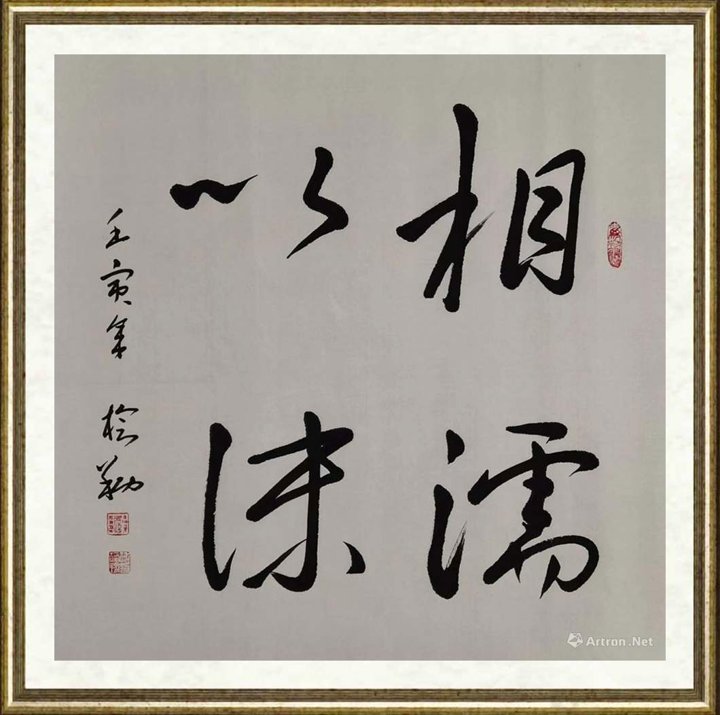 相濡
以沫
壬寅年
Artron.Net